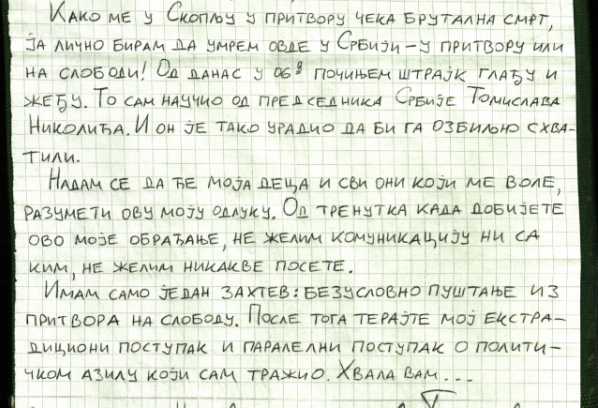 Како ме у Скопљу у притвору чека брутална смрт,
ја лично бирам да умрем овде у Србији – у притвору или
на слободи! Од данас у 06 почињем штрајк глађу и
жеђу. То сам научио од председника Србије Томислава
Николића. И он је тако урадио да би га озбиљно схва-
тили.
Надам се да ће моја деца и сви они који ме воле,
разумети ову моју одлуку. Од тренутка када добијете
ово моје обраћање, не желим комуникацију ни са
ким, не желим никакве посете.
Имам само један захтев: безусловно пуштање из
притвора на слободу. После тога терајте мој екстра-
дициони поступак и паралелни поступак о полити-
чком азилу који сам тражио. Хвала вам...